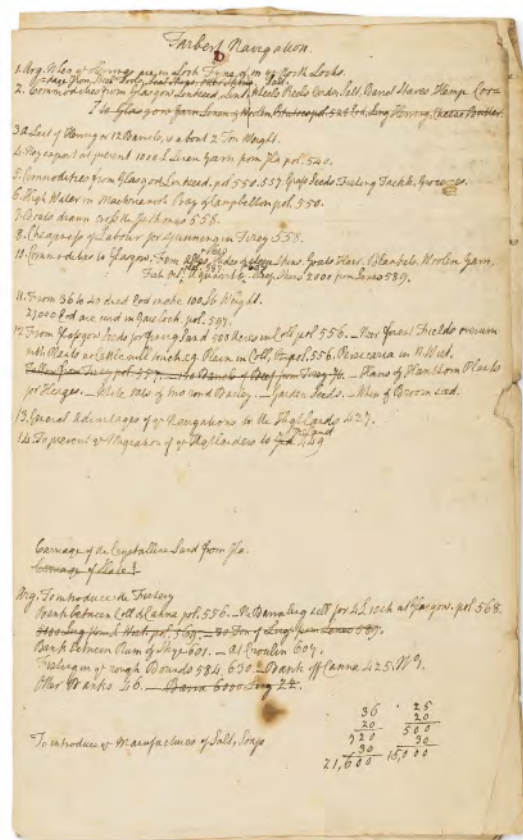 Tarbert Navigation.
1. Arg. When ye Herrings are in Loch Fyne & in ye North Lochs.
2. Commodities from Glasgow Lintseed, Lint Wheels Reels Cards, Salt, Barrel Staves Hemp Cor=
To Glasgow Yarn Linen & Woolen Potatoes pol. 528 Cod, Ling Herring, Cheese Butter.
3. A Last of Herring or 12 Barrels, is about 2 Ton Weight.
4. They export at present 1000 £ Linen Yarn from Jla pol. 540.
5. Commodities from Glasgow Lintseed. pol 550. 557. Grass Seeds Fishing Tackle, Groceries.
6. High Water in Machrianish Bay & Campbellon pol. 550.
7. Boats drawn cross the Isthmus 558.
8. Cheapness of Labour for Spinning in Tirey 558.
10. Commodities to Glasgow. From Hides & Sheep Skins. Goats Hair. Blankets. Woolen Yarn,
Fish Oil, Skins 2000 from Lewes 589.
11. From 36 to 40 dried Cod make 100 lb Weight.
27000 Cod are cured in Gasloch. pol. 597.
12. From Glasgow Seeds for sowing Land 500 Acres in Coll pol 556. — Near great Fields overrun
with Plants no Cattle will touch. eg. in Coll, 556. Persecaria in N. Uist.
Tallow from Tirey pol. 557. — 150 Barrels of Beef from Tirey Ib. — Haws of Hawthorn Plants
for Hedges. — White Oats & two rowd Barley. — Garden Seeds. — Whin & Broom seed.
13. General Advantages of ye Navigations to the Highlands 427.
14. To prevent ye Migration of ye Highlanders to Ireland 449
Carriage of the Crystalline Sand from Jla.
Carriage of Slate
Arg. To introduce the Fishery
Bank between Coll & Canna pol. 556. — The Barra Ling sell for 4£. each at Glasgow. pol 568.
Ling from pol. 569. — 30 Ton of Ling from Lewes 589.
Bank between Rum & Skye 601. — At Croulin 607.
Fishing in ye rough Bounds 584. 630. — Bank off Canna 425. No 9.
Other Banks 46. — Barra 6000 Ling 22.
To introduce ye Manufactures of Salt, Soap
36 25
20 20
720 500
30 30
21,600 15,000